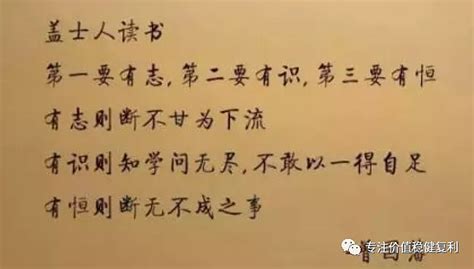 盖士人读书
第一要有志,第二要有识,第三要有恒
有志则断不甘为下流
有识则知学问无尽,不敢以一得自足
有恒则断无不成之事
专注价值稳健复利